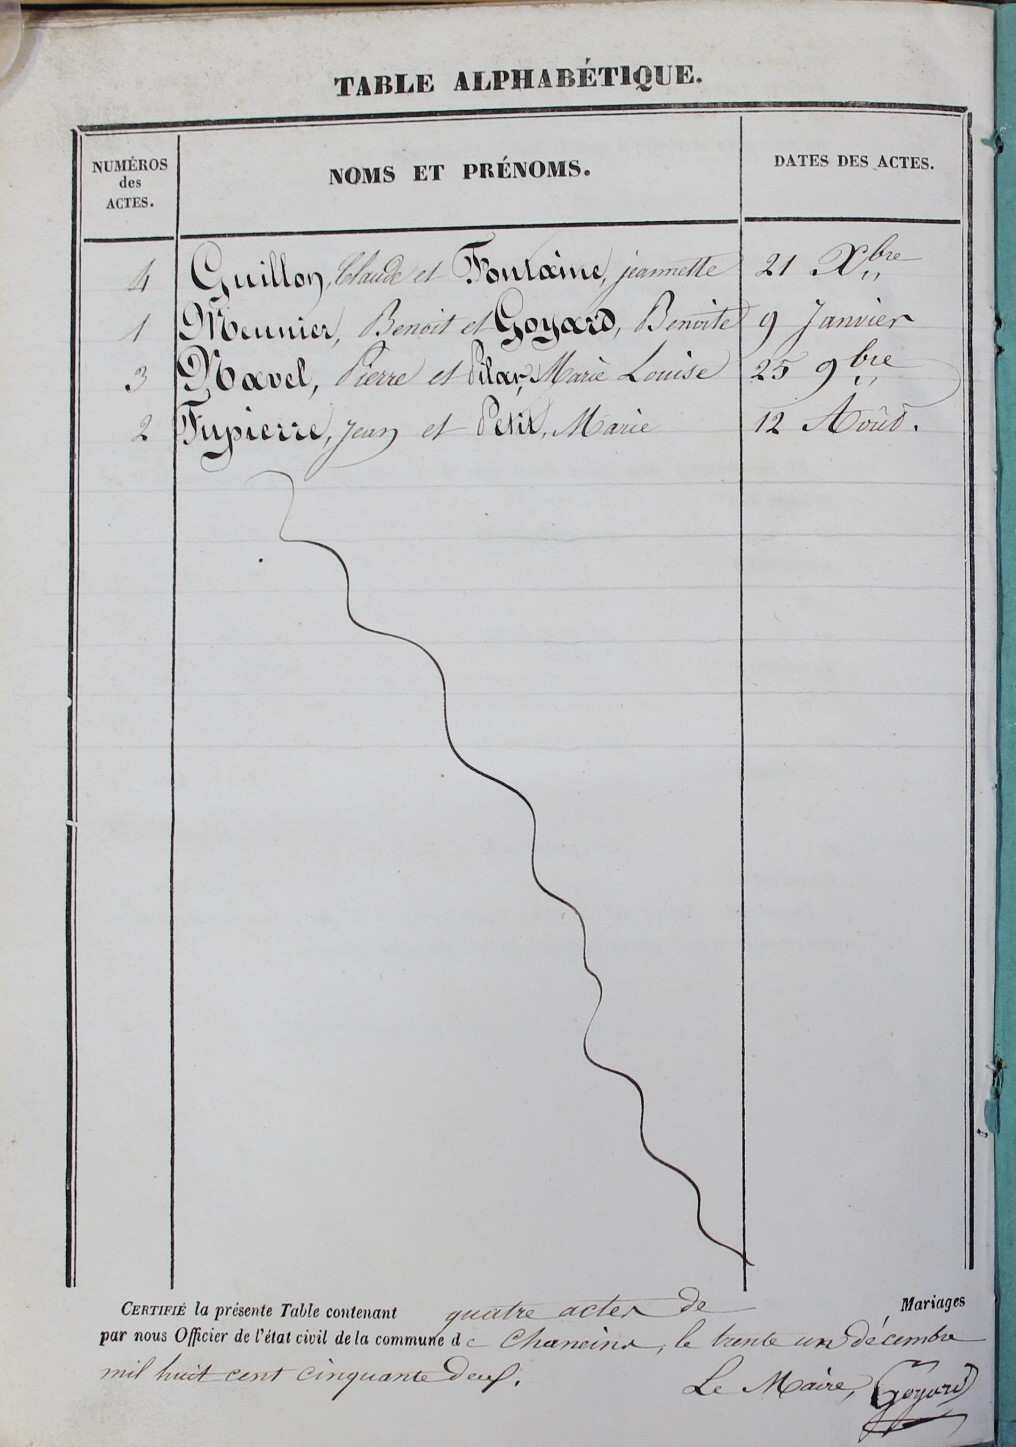 TABLE ALPHABÉTIQUE.
NUMÉROS des ACTES. NOMS ET PRÉNOMS. DATES DES ACTES.
4 Guillon, Claude et Fontaine, jeannette 21 Xbre
1 Meunier, Benoit et Goyard, Benoite 9 Janvier
3 Navel, Pierre et Pilar, Marie Louise 25 9bre
2 Tupierre, Jean et Petit, Marie 12 Août.
CERTIFIÉ la présente Table contenant quatre actes de Mariages
par nous Officier de l'état civil de la commune de Chaneins, le trente un décembre
mil huit cent cinquante deux.
Le Maire, Goyard